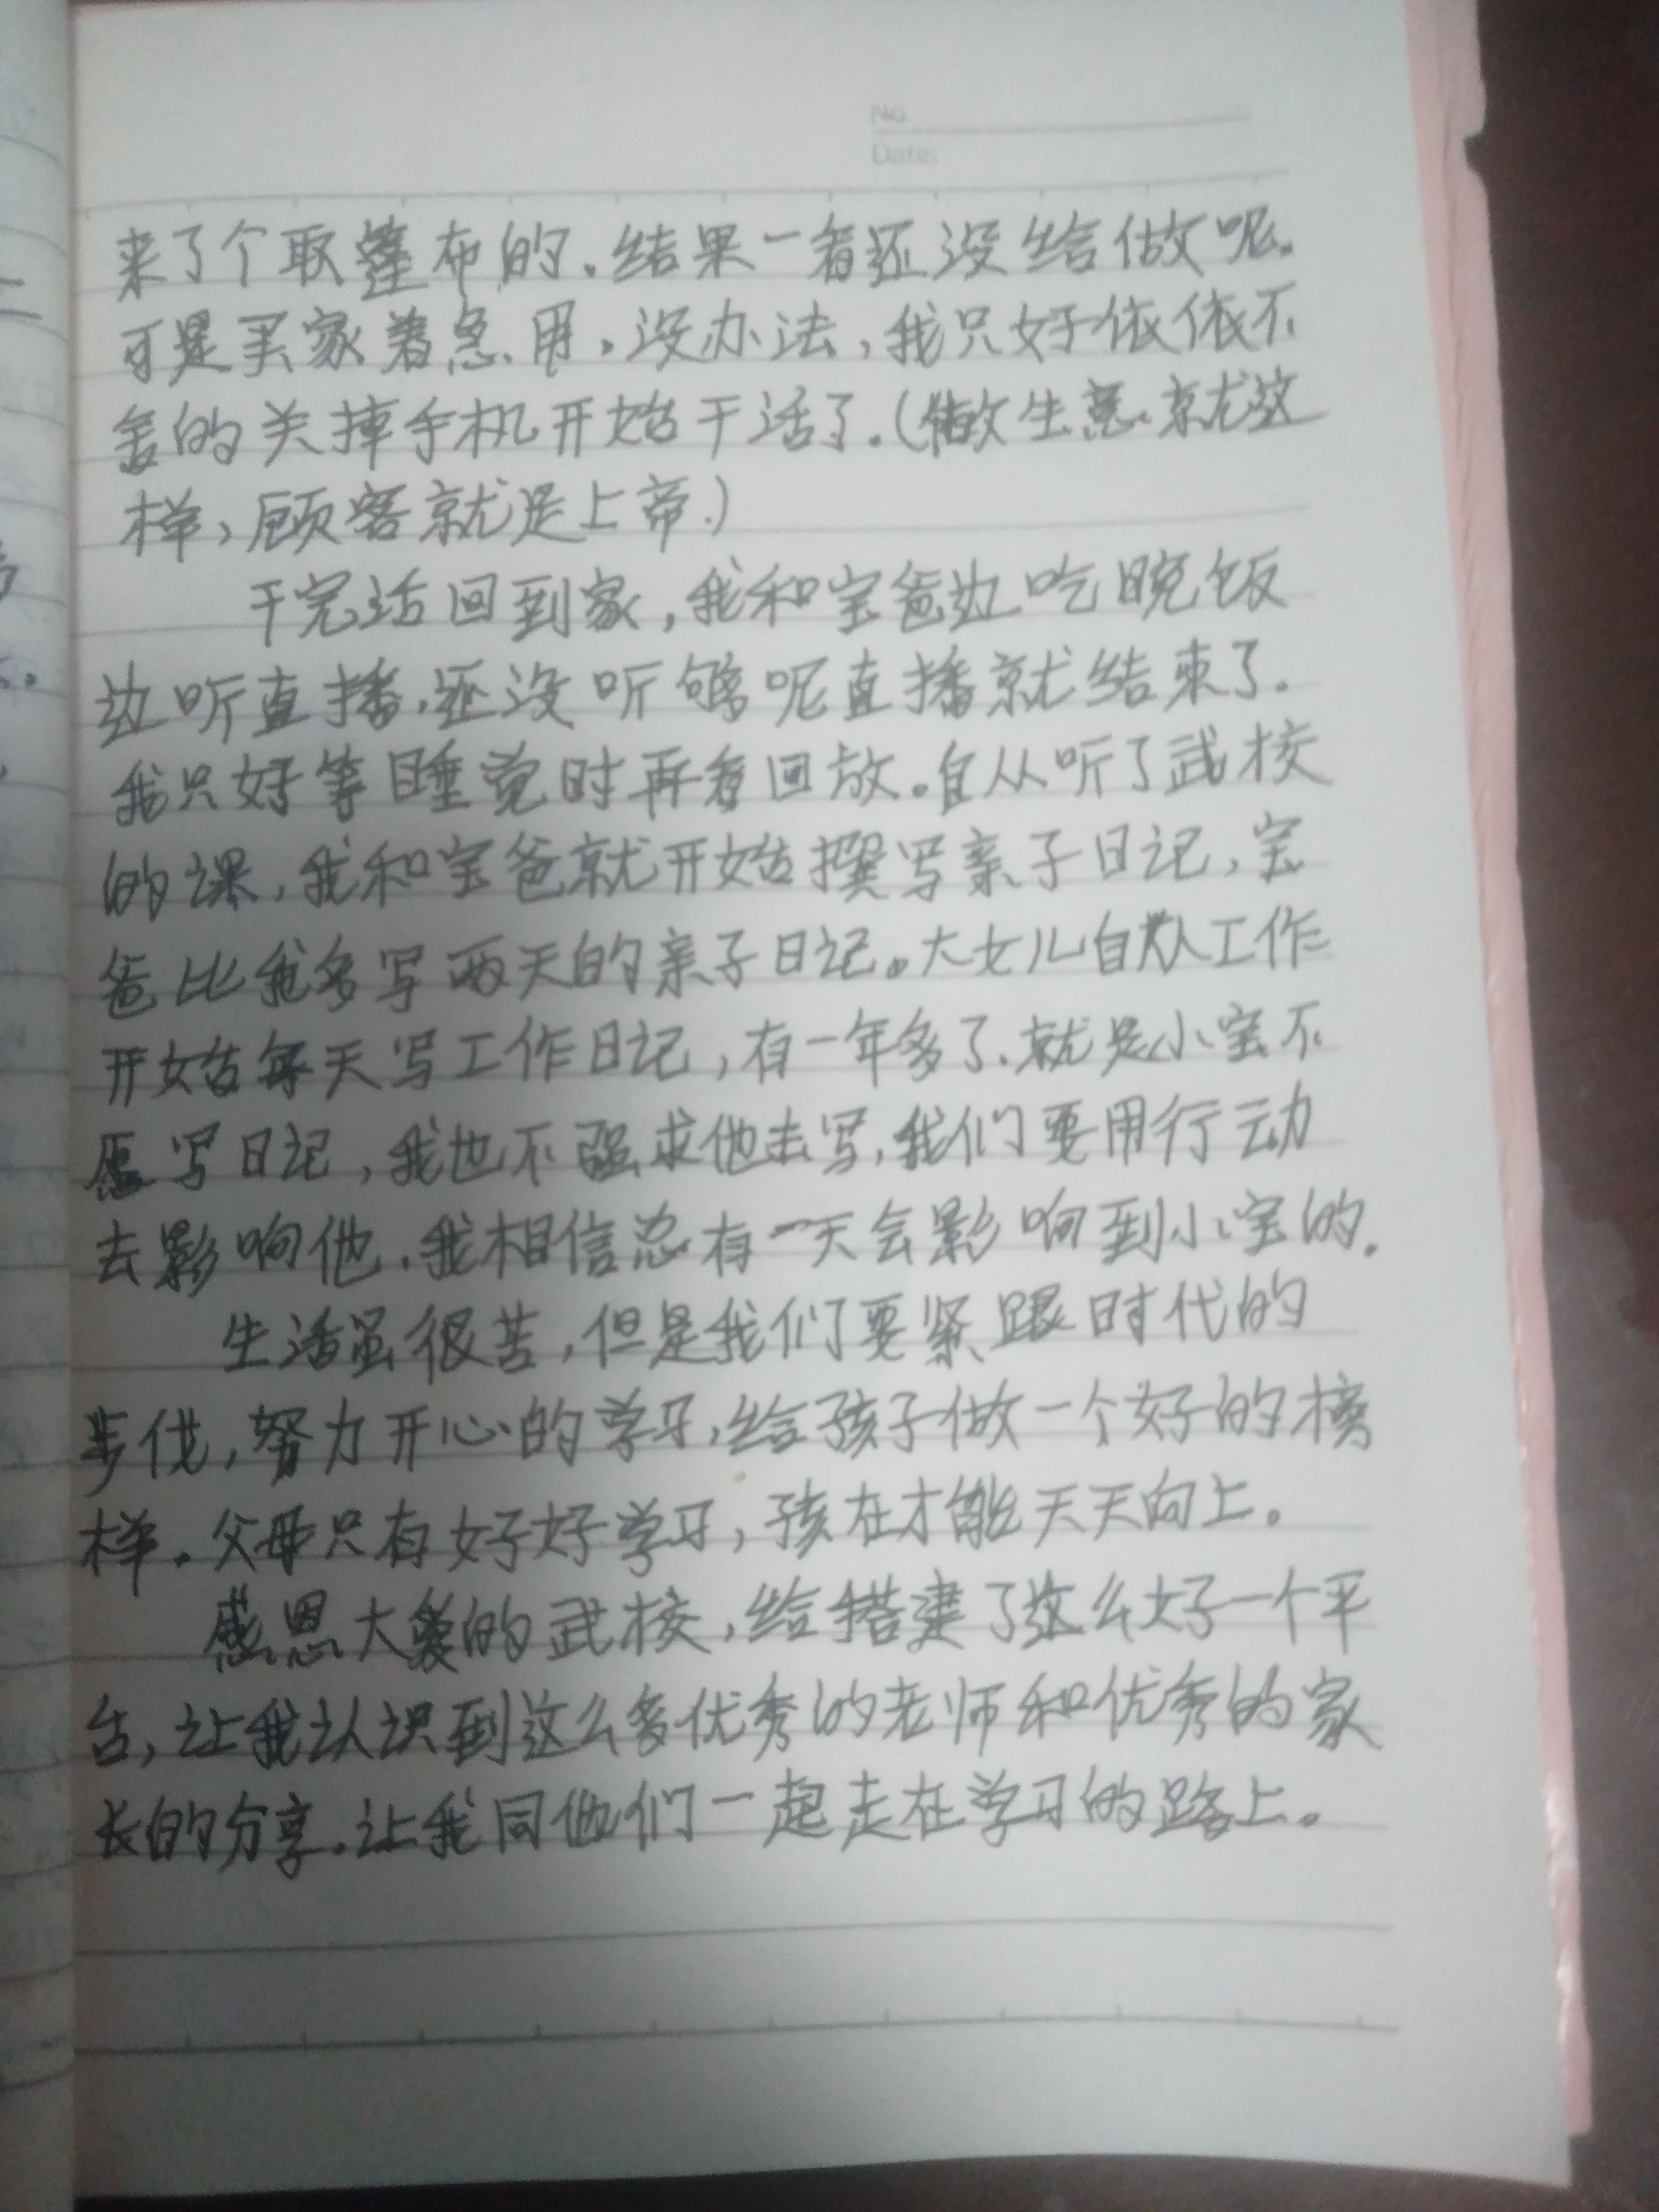 No.
Date:
来了个取篷布的。结果一看还没给做呢。
可是买家着急用。没办法，我只好依依不
舍的关掉手机开始干活了。(做生意就这
样，顾客就是上帝。)
干完活回到家，我和宝爸边吃晚饭
边听直播，还没听够呢直播就结束了。
我只好等睡觉时再看回放。自从听了武校
的课，我和宝爸就开始撰写亲子日记，宝
爸比我多写两天的亲子日记。大女儿自从工作
开始每天写工作日记，有一年多了、就是小宝不
愿写日记，我也不强求他去写，我们要用行动
去影响他，我相信总有一天会影响到小宝的。
生活虽很苦，但是我们要紧跟时代的
步伐，努力开心的学习，给孩子做一个好的榜
样。父母只有好好学习，孩在才能天天向上。
感恩大爱的武校，给搭建了这么好一个平
台，让我认识到这么多优秀的老师和优秀的家
长的分享。让我同他们一起走在学习的路上。